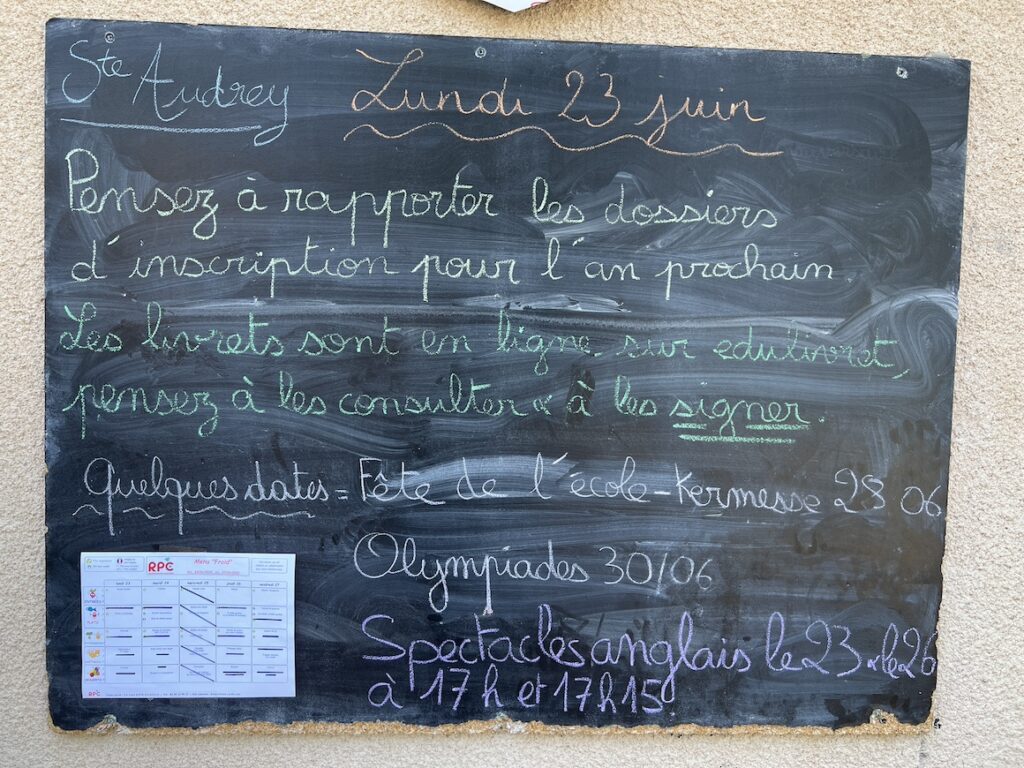 Ste Audrey
Lundi 23 juin
Pensez à rapporter les dossiers
d'inscription pour l'an prochain
Les livrets sont en ligne sur edulivret,
pensez à les consulter & à les signer.
Quelques dates = Fête de l'école - Kermesse 28 06
Olympiades 30/06
Spectacles anglais le 23 & le 26
à 17h et 17h15
RPC
Menu "Froid"
lundi 23 mardi 24 mercredi 25 jeudi 26 vendredi 27
RPC